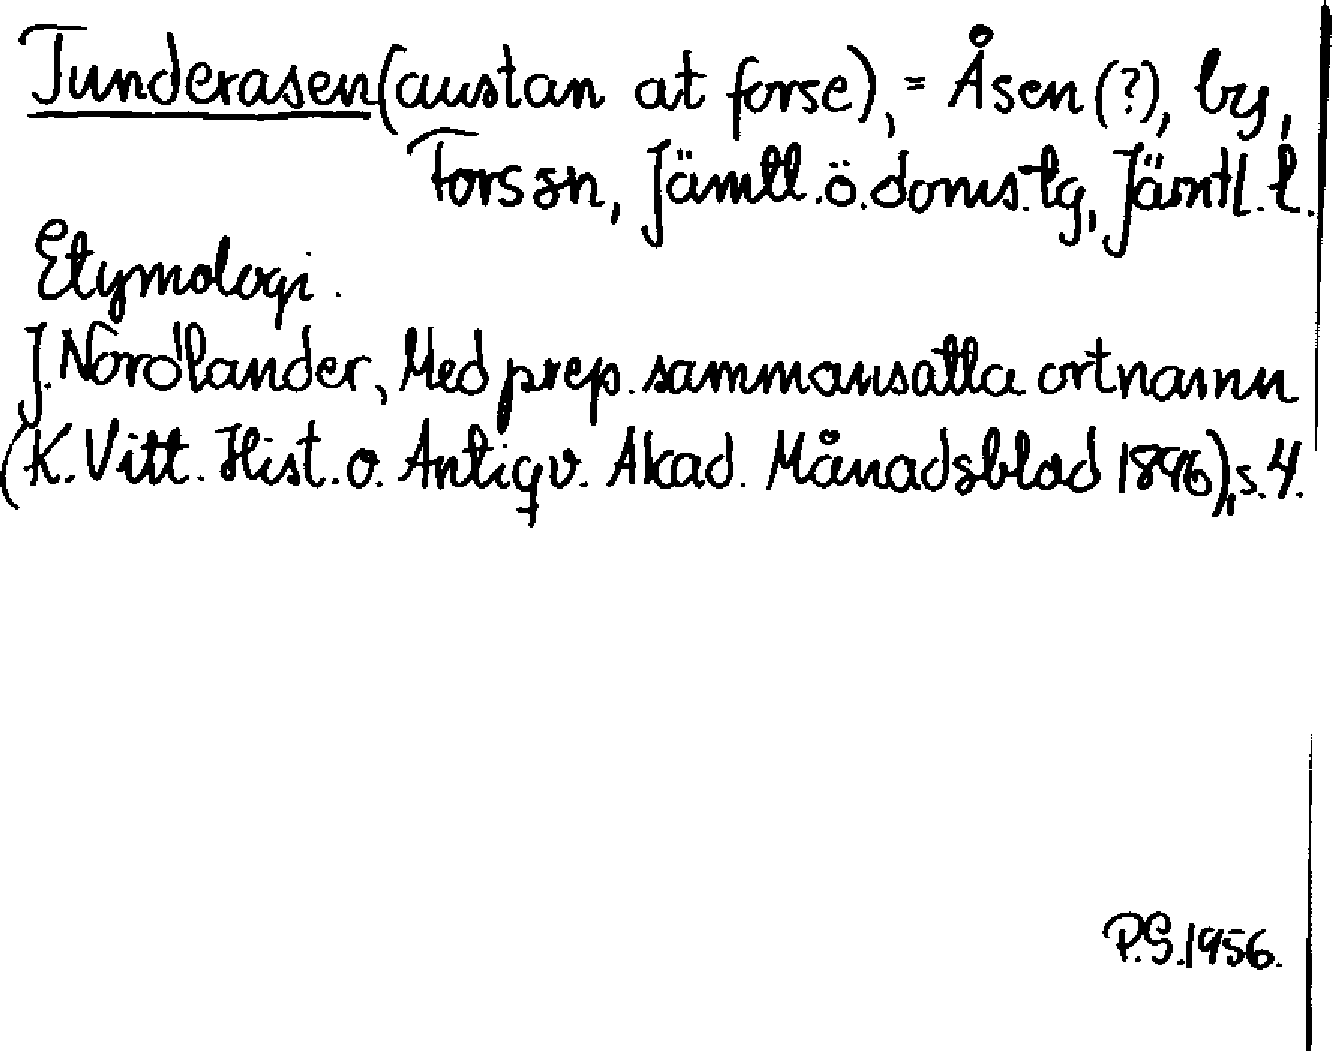 Tunderasen (austan at forse), = Åsen (?), by,
Fors sn, Jämtl. ö. doms. tg, Jämtl. l.
Etymologi.
J. Nordlander, Med prep. sammansatta ortnamn
(K. Vitt. Hist. o. Antiqv. Akad. Månadsblad 1896), s. 4.
P.S. 1956.